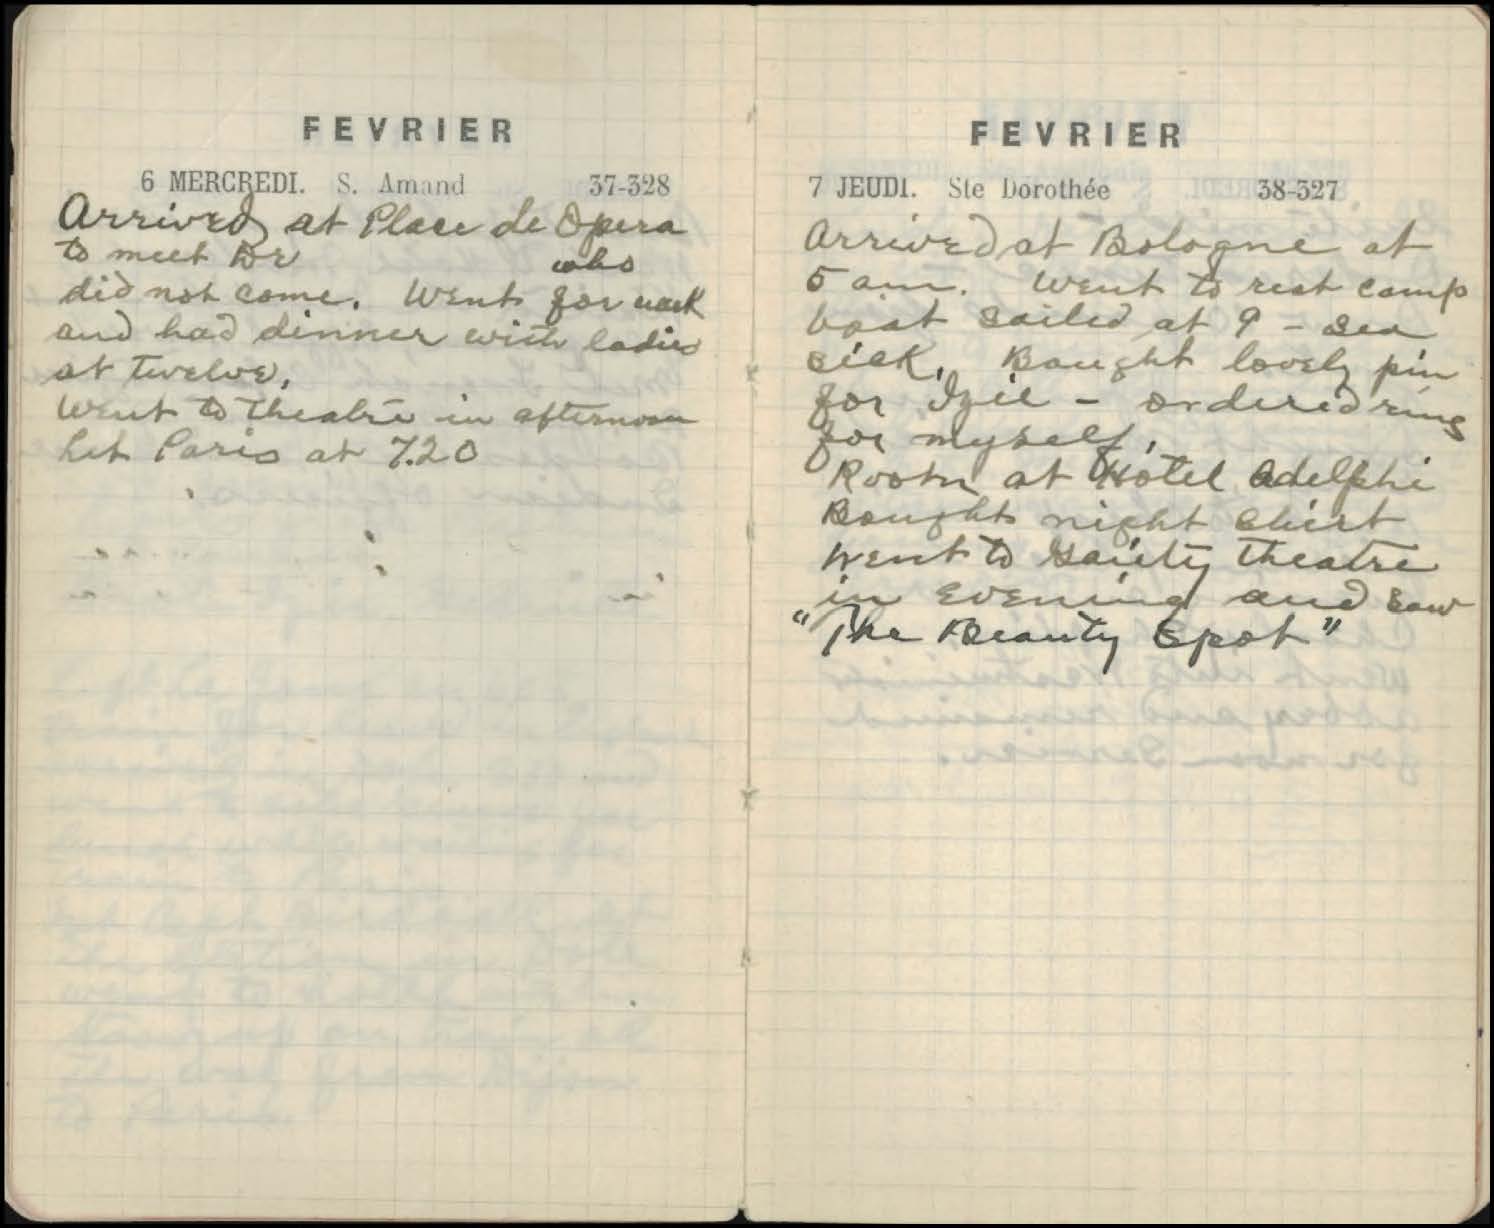 FEVRIER
6 MERCREDI. S. Amand 37-328
Arrived at Place de Opera
to meet Dr who
did not come. Went for walk
and had dinner with ladies
at twelve.
Went to theatre in afternoon
left Paris at 7.20
FEVRIER
7 JEUDI. Ste Dorothée 38-327
Arrived at Bologne at
5 am. Went to rest camp
boat sailed at 9 - sea
sick. Bought lovely pin
for - ordered ring
for myself.
Room at Hotel Adelphi
Bought night shirt
Went to Gaiety Theatre
in evening and saw
"The Beauty Spot"